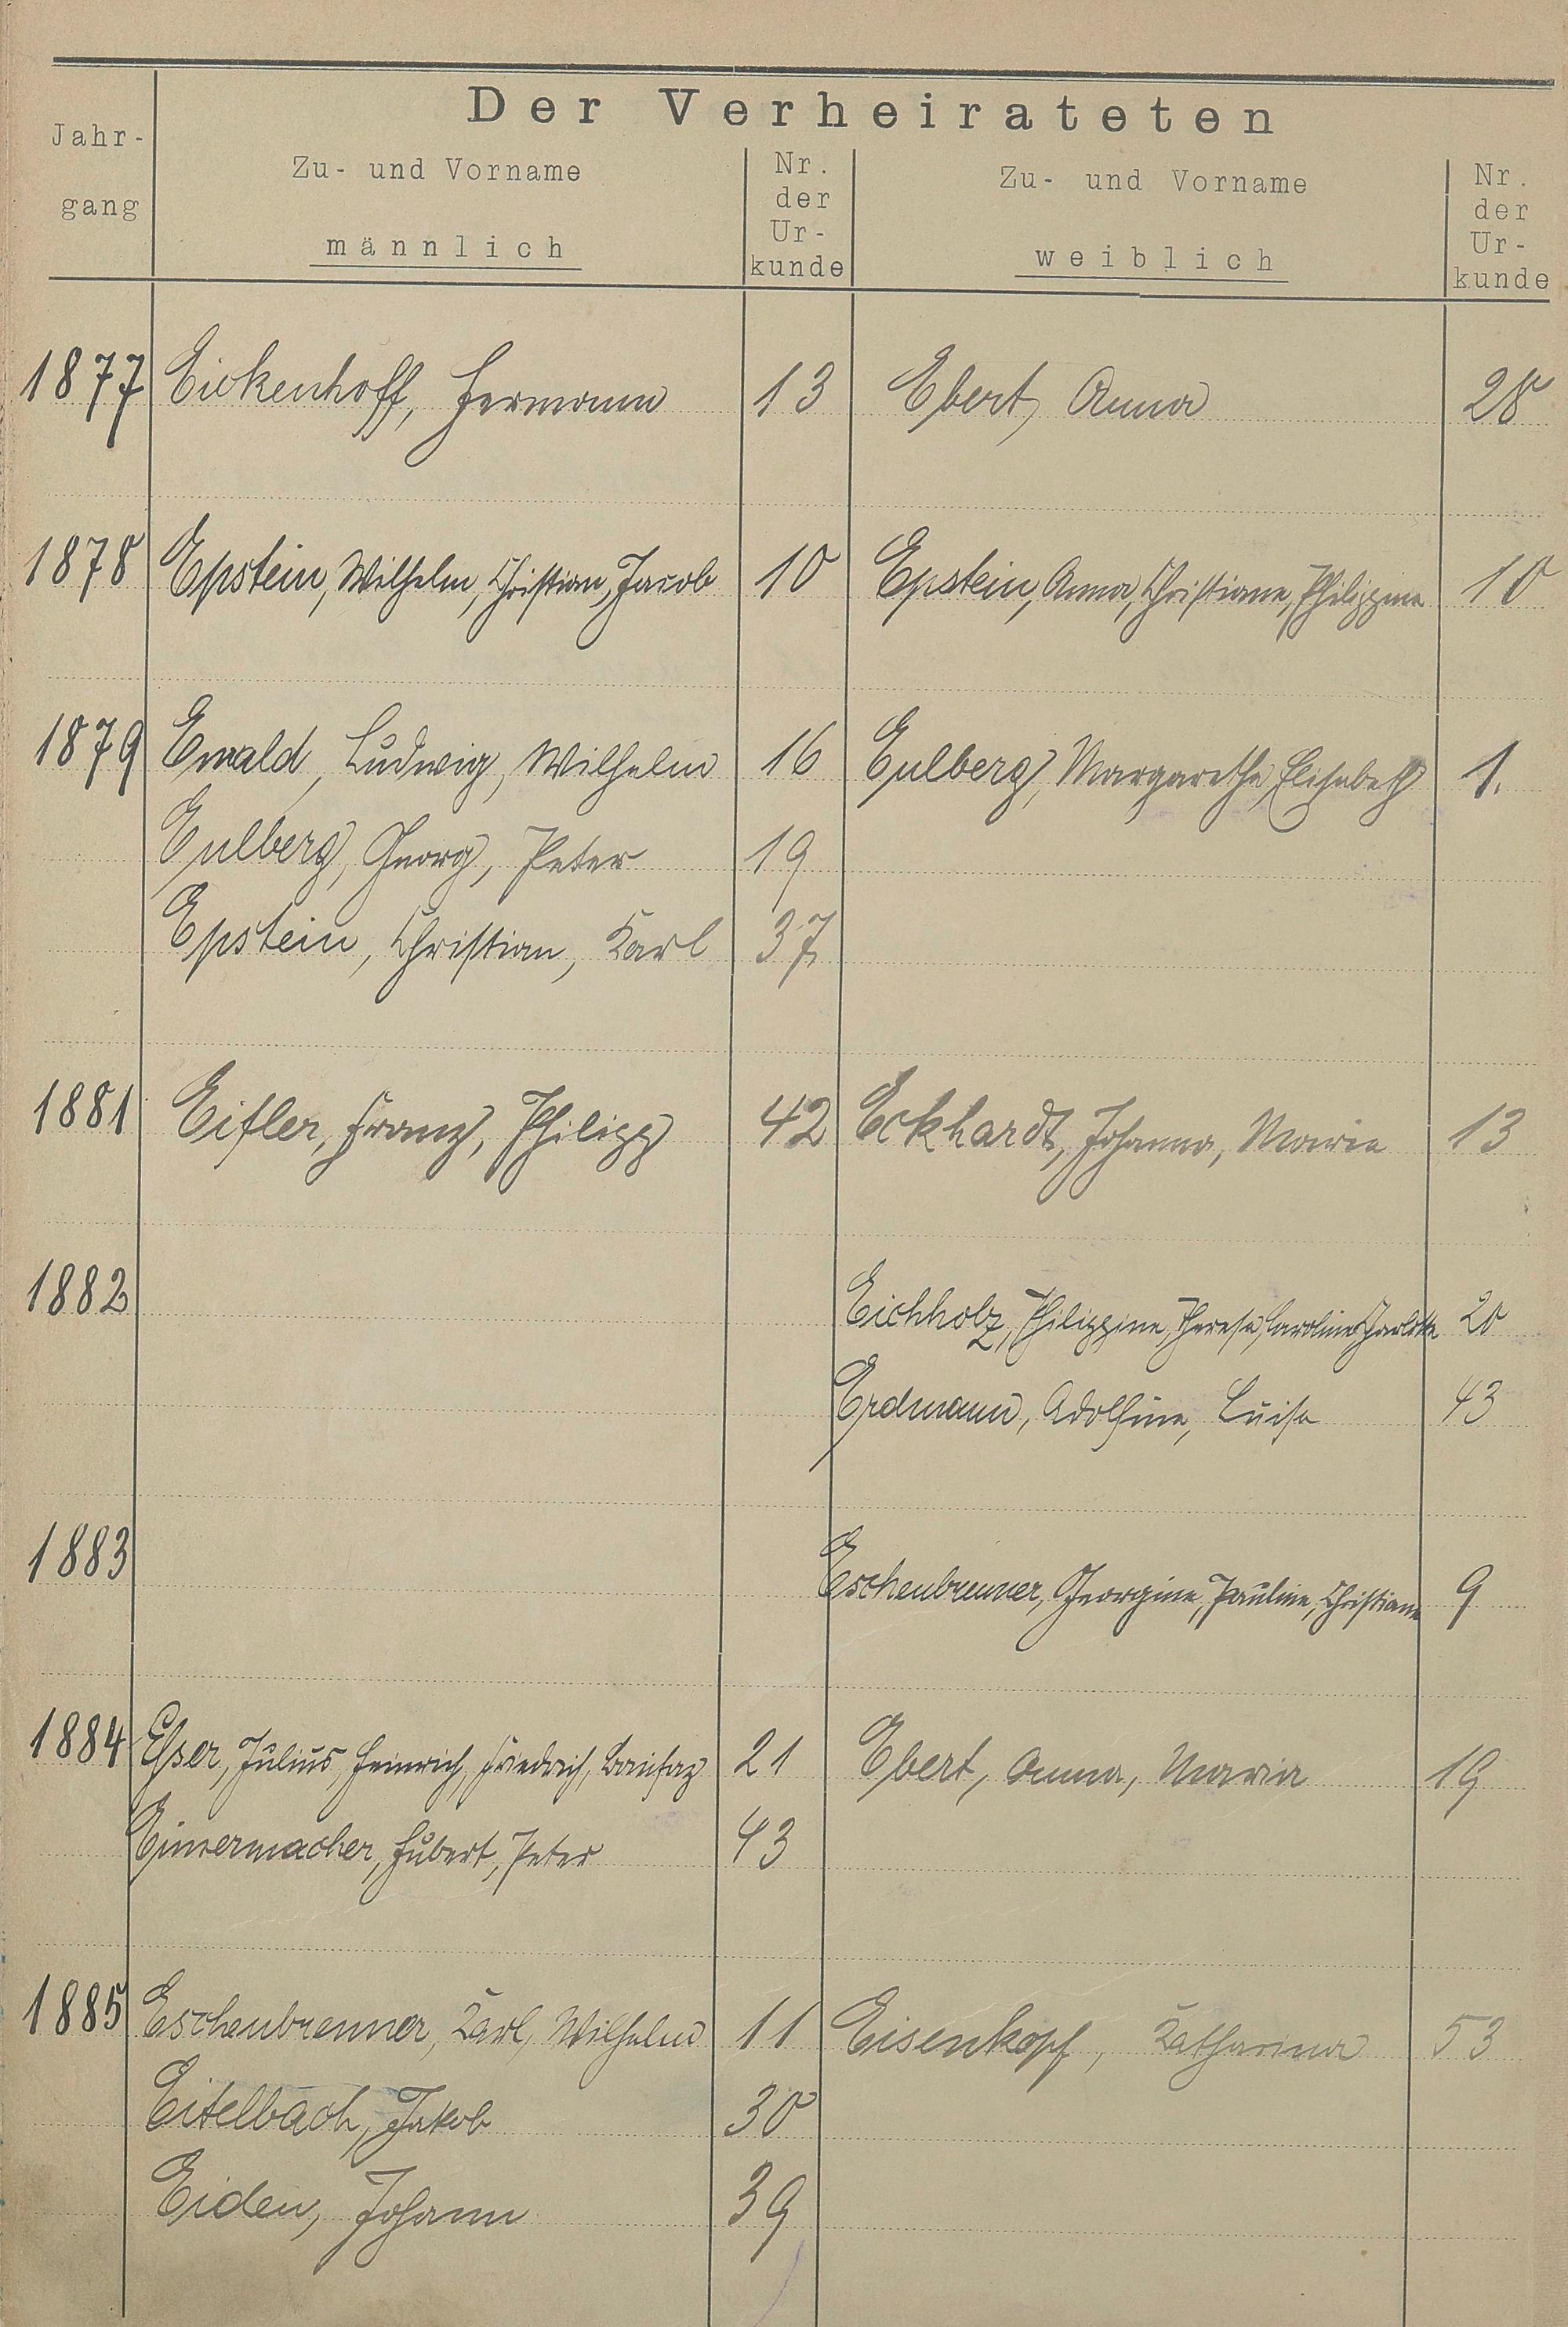 Der Verheirateten
Jahr-
gang
Zu- und Vorname
männlich
Nr.
der
Ur-
kunde
Zu- und Vorname
weiblich
Nr.
der
Ur-
kunde
1877 Eickenhoff, Hermann 13 Ebert, Anna 28
1878 Epstein, Wilhelm, Christian, Jacob 10 Epstein, Anna, Christiane, Philippine 10
1879 Ewald, Ludwig, Wilhelm 16 Eulberg, Margarethe, Elisabeth 1.
Eulberg, Georg, Peter 19
Epstein, Christian, Karl 37
1881 Eifler, Franz, Philipp 42 Eckhardt, Johanna, Marie 13
1882 Eichholz, Philippine, Therese, Caroline Charlotte 20
Erdmann, Adolfine, Luise 43
1883 Eschenbrenner, Georgine, Pauline, Christiane 9
1884 Esser, Julius, Heinrich, Friedrich, Bonifaz 21 Ebert, Anna, Maria 19
Eimermacher, Hubert, Peter 43
1885 Eschenbrenner, Karl, Wilhelm 11 Eisenkopf, Katharina 53
Eitelbach, Jakob 30
Eiden, Johann 39